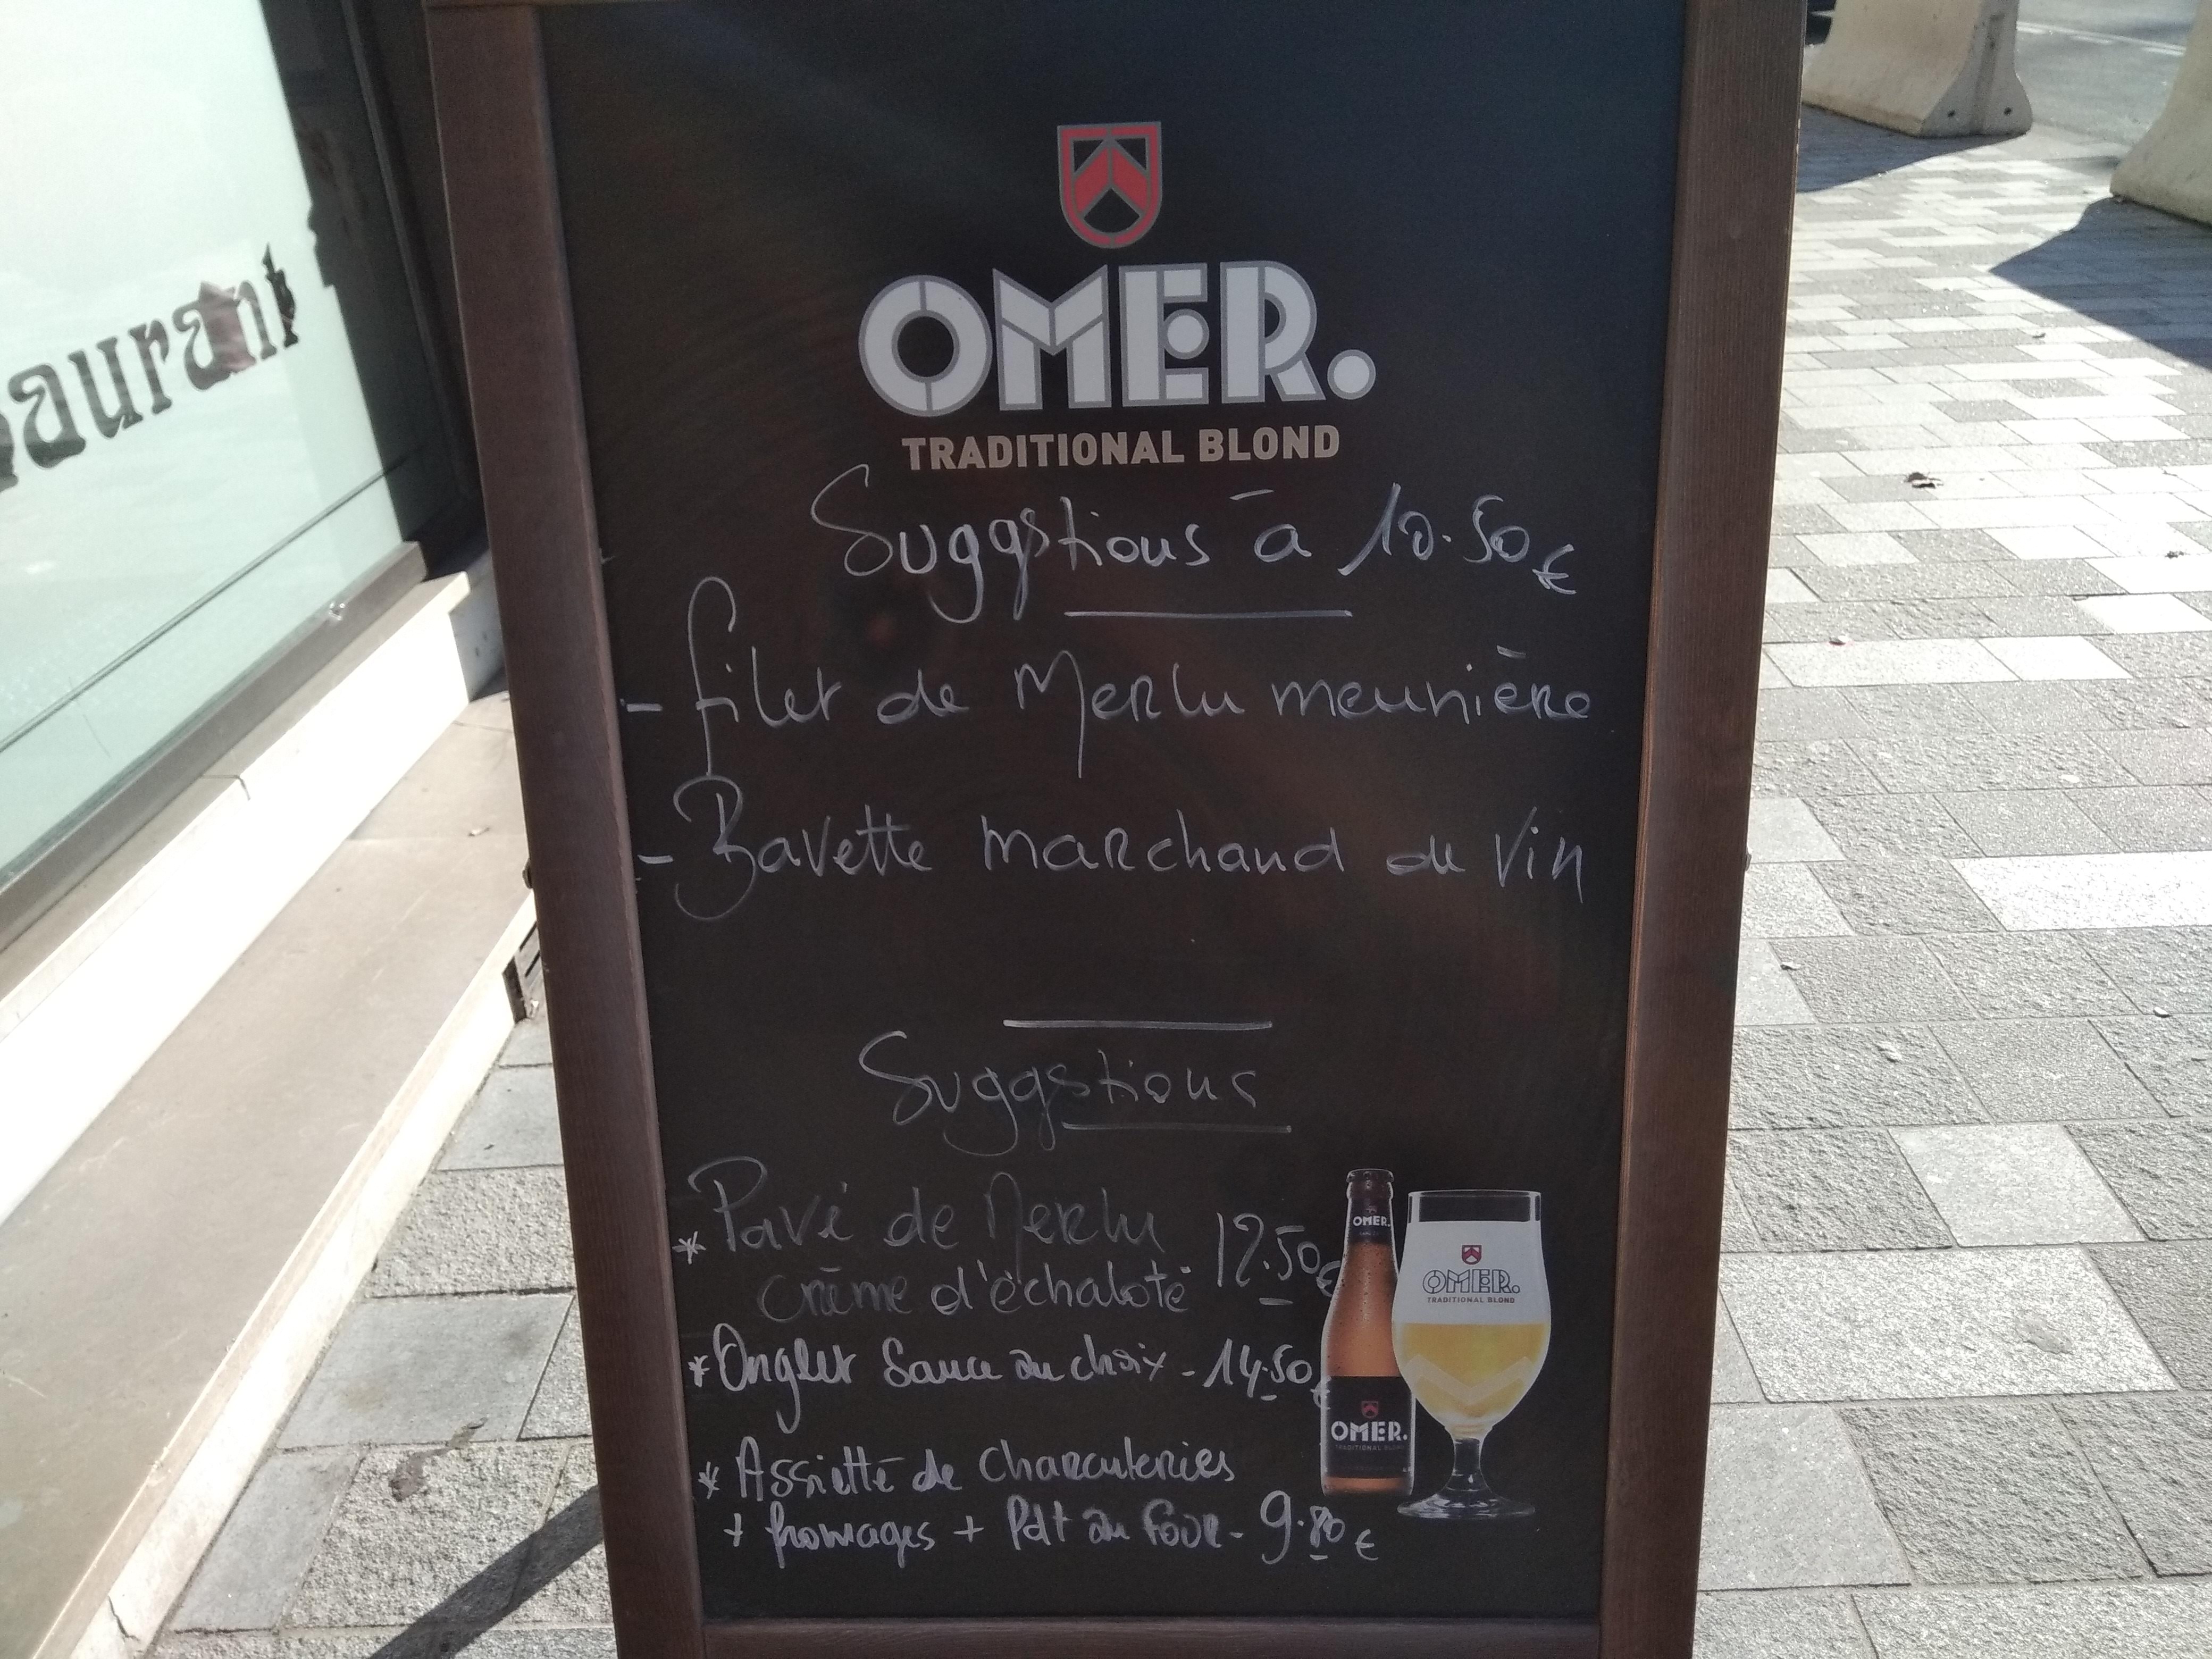 saurant
OMER.
TRADITIONAL BLOND
Suggstions à 10.50€
- filet de Merlu meunière
- Bavette marchand de vin
Suggstions
* Pavé de Merlu 12.50€
crème d'échalote
* Onglet Sauce au choix - 14.50€
* Assiette de charcuteries
+ fromages + Pdt au four - 9.80€
OMER.
OMER.
TRADITIONAL BLOND
OMER.
TRADITIONAL BLOND